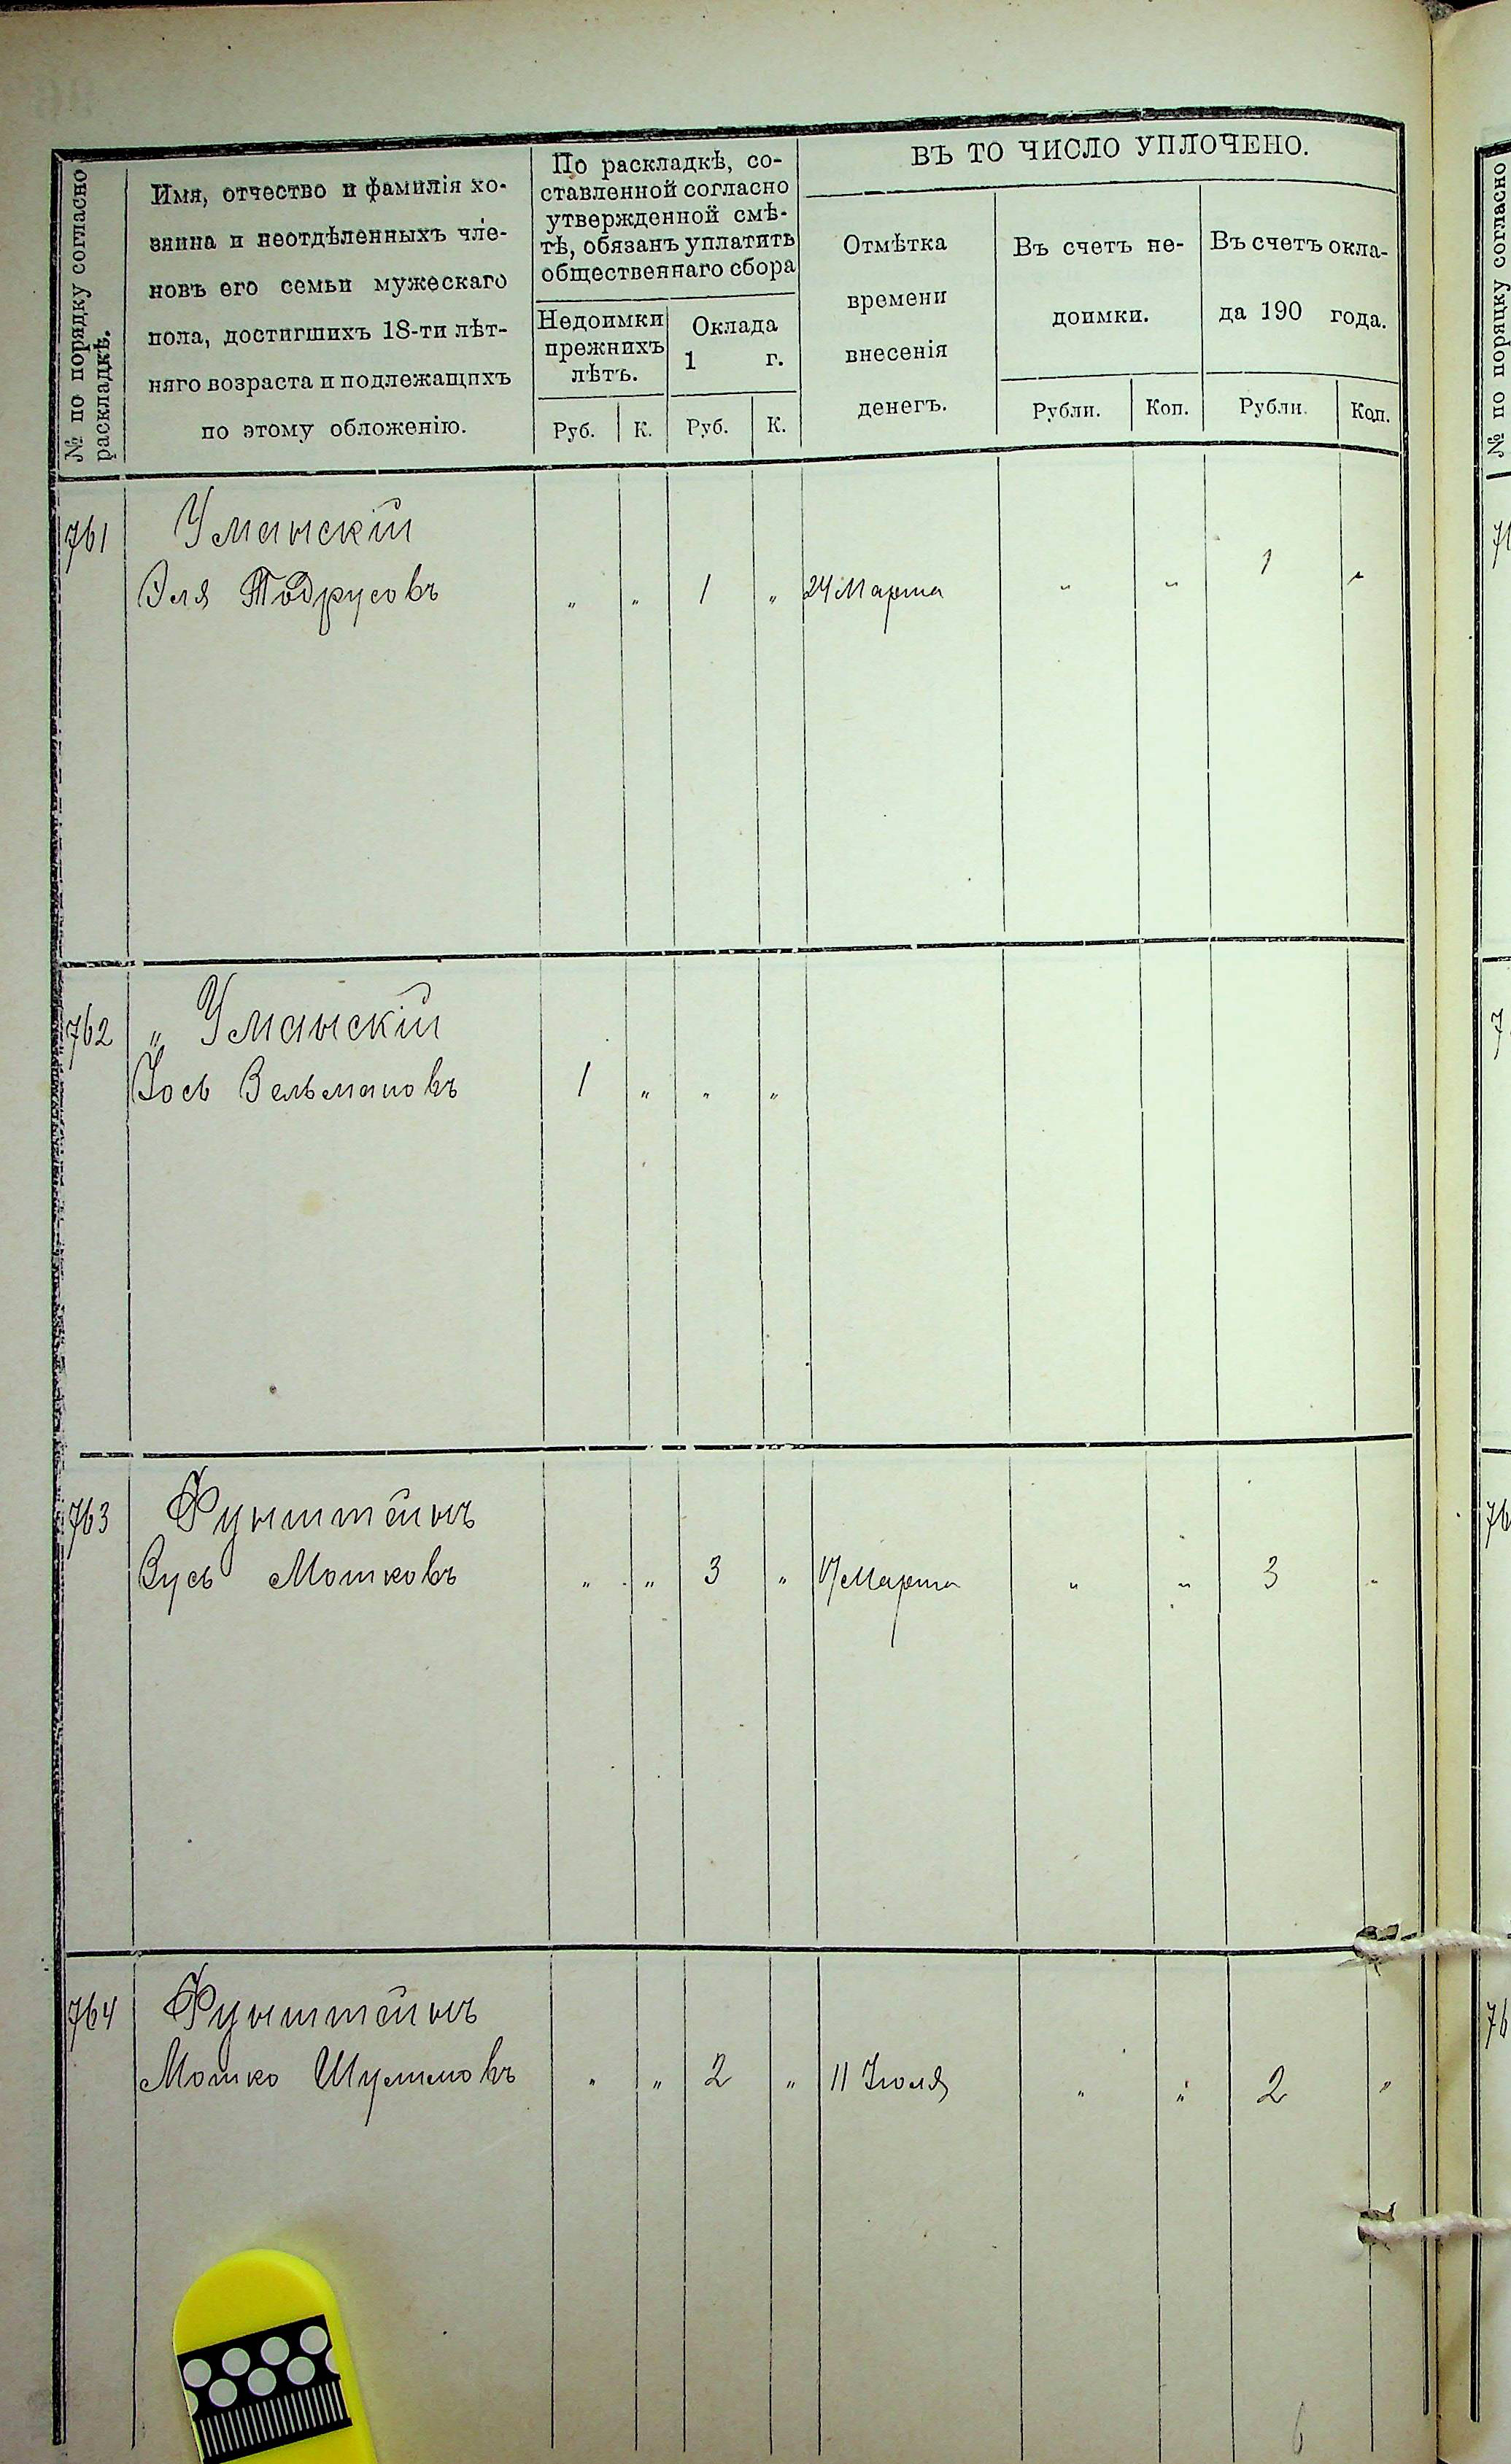 № по порядку согласно
раскладкѣ.
Имя, отчество и фамилія хо-
зяина и неотдѣленныхъ чле-
новъ его семьи мужескаго
пола, достигшихъ 18-ти лѣт-
няго возраста и подлежащихъ
по этому обложенію.
По раскладкѣ, со-
ставленной согласно
утвержденной смѣ-
тѣ, обязанъ уплатить
общественнаго сбора
Недоимки
прежнихъ
лѣтъ.
Оклада
1 г.
Руб. К. Руб. К.
ВЪ ТО ЧИСЛО УПЛОЧЕНО.
Отмѣтка
времени
внесенія
денегъ.
Въ счетъ не-
доимки.
Рубли. Коп.
Въ счетъ окла-
да 190 года.
Рубли. Коп.
761 Уманскій
Эля Тодрусовъ " " 1 " 24 Марта " " 1 "
762 " Уманскій
Іось Зельмановъ 1 " " "
763 Фунштейнъ
Зусь Мошковъ " " 3 " 17 Марта " " 3 "
764 Фунштейнъ
Мошко Шулимовъ " " 2 " 11 Іюля " " 2 "
6
№ по порядку согласно